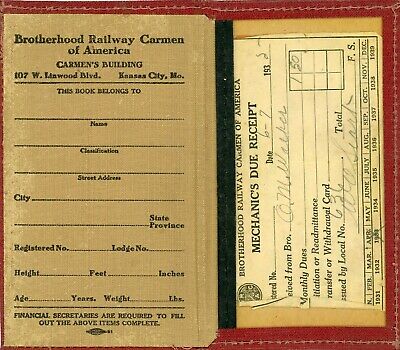 Brotherhood Railway Carmen
of America
CARMEN'S BUILDING
107 W. Linwood Blvd. Kansas City, Mo.
THIS BOOK BELONGS TO
Name
Classification
Street Address
City
State
Province
Registered No. Lodge No.
Height, Feet Inches
Age Years, Weight Lbs.
FINANCIAL SECRETARIES ARE REQUIRED TO FILL
OUT THE ABOVE ITEMS COMPLETE.
BROTHERHOOD RAILWAY CARMEN OF AMERICA
MECHANIC'S DUE RECEIPT
stered No. Date 6-7 193
ceived from Bro.
Monthly Dues 1.50
itiation or Readmittance
ransfer or Withdrawal Card
issued by Local No. Total
F. S.
N. FEB. MAR. APR. MAY JUNE JULY AUG. SEP. OCT. NOV. DEC.
1931 1932 1933 1934 1935 1936 1937 1938 1939